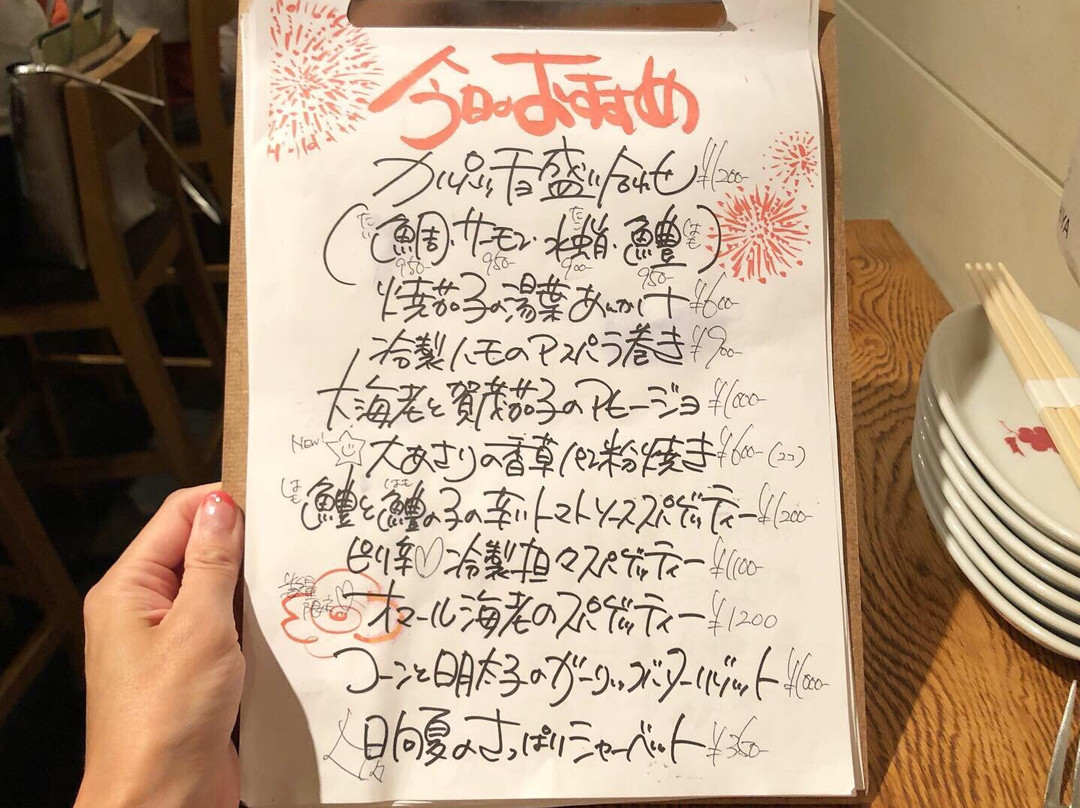 今日のおすすめ
カルパッチョ盛り合わせ ¥1200-
(鯛・サーモン・水蛸・鱧)
たい たこ はも
950- 950- 900- 950-
焼茄子の湯葉あんかけ ¥600-
冷製ハモのアスパラ巻き ¥900-
大海老と賀茂茄子のアヒージョ ¥1000-
NEW! 大あさりの香草パン粉焼き ¥600-(2コ)
はも はも
鱧と鱧の子の辛いトマトソーススパゲッティー ¥1200-
ピリ辛♡冷製担々スパゲッティー ¥1100-
数量限定 オマール海老のスパゲッティー ¥1200
コーンと明太子のガーリックバターリゾット ¥1000-
日向夏のさっぱりシャーベット ¥350-